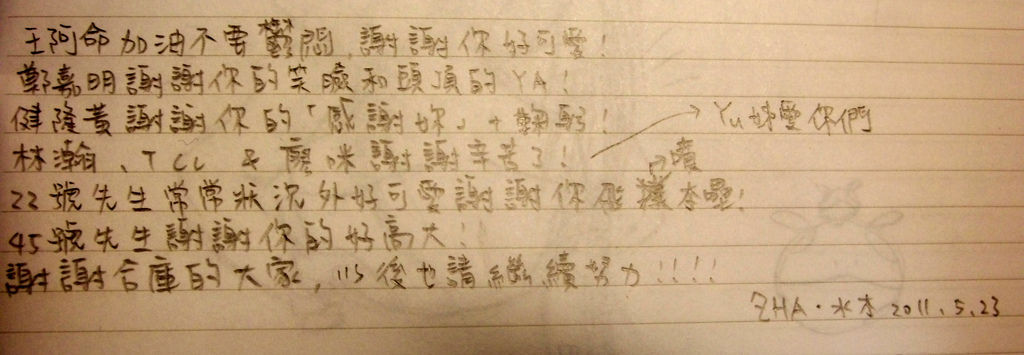 王阿命加油不要鬱悶,謝謝你好可愛!
鄭嘉明謝謝你的笑臉和頭頂的YA!
健隆黃謝謝你的「感謝妳」+鞠躬!
→Yu姊愛你們
林瀚、TCL & 麼咪謝謝辛苦了!
22號先生常常狀況外好可愛謝謝你
45號先生謝謝你的好高大!!
謝謝合庫的大家,以後也請繼續努力!!!!
ZHA·水本 2011.5.23